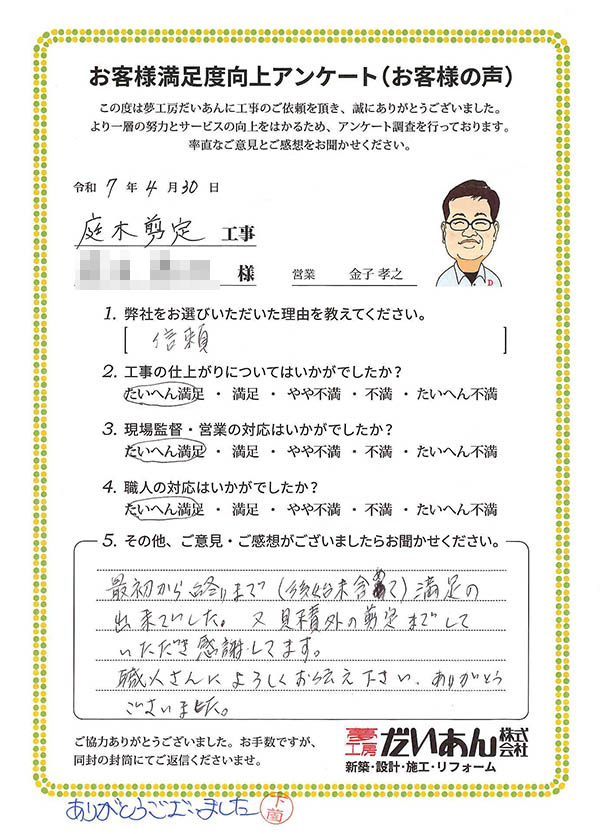 お客様満足度向上アンケート（お客様の声）
この度は夢工房だいあんに工事のご依頼を頂き、誠にありがとうございました。
より一層の努力とサービスの向上をはかるため、アンケート調査を行っております。
率直なご意見とご感想をお聞かせください。
令和 7 年 4 月 30 日
庭木剪定 工事
様 営業 金子 孝之
D
1. 弊社をお選びいただいた理由を教えてください。
[ 信頼 ]
2. 工事の仕上がりについてはいかがでしたか？
たいへん満足 ・ 満足 ・ やや不満 ・ 不満 ・ たいへん不満
3. 現場監督・営業の対応はいかがでしたか？
たいへん満足 ・ 満足 ・ やや不満 ・ 不満 ・ たいへん不満
4. 職人の対応はいかがでしたか？
たいへん満足 ・ 満足 ・ やや不満 ・ 不満 ・ たいへん不満
5. その他、ご意見・ご感想がございましたらお聞かせください。
最初から終りまで（後始末含めて）満足の
出来でした。又見積外の剪定までして
いただき感謝してます。
職人さんによろしくお伝え下さい、ありがとう
ございました。
ご協力ありがとうございました。お手数ですが、
同封の封筒にてご返信くださいませ。
夢工房 だいあん 株式会社
新築・設計・施工・リフォーム
ありがとうございました 下薗